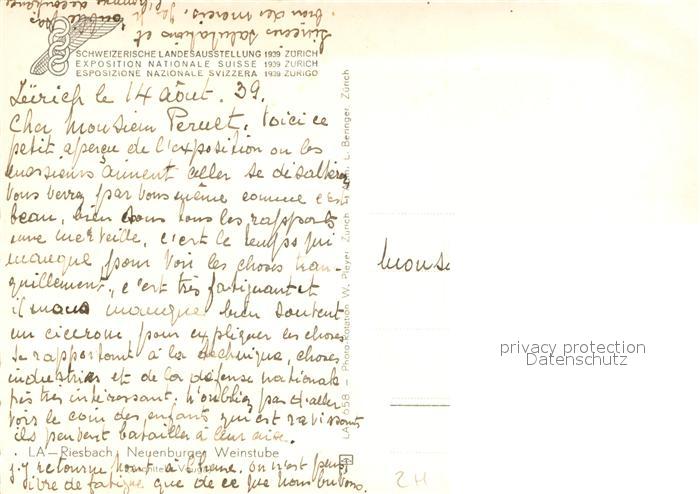 SCHWEIZERISCHE LANDESAUSSTELLUNG 1939 ZÜRICH
EXPOSITION NATIONALE SUISSE 1939 ZURICH
ESPOSIZIONE NAZIONALE SVIZZERA 1939 ZURIGO
Zürich le 14 août. 39.
Cher Monsieur Perret. Voici ce
petit aperçu de l'exposition ou les
messieurs aiment aller se désaltérer
Vous verrez par vous même comme c'est
beau, bien sous tous les rapports
une merveille, c'est le temps qui
manque pour voir les choses tran-
quillement, c'est très fatiguant et
il nous manque bien souvent
un cicerone pour expliquer les choses
se rapportant à la technique, choses
industries et de la défense nationale
très intéressant. N'oubliez pas d'aller
voir le coin des enfants qui est ravissant
ils peuvent batailler à leur aise.
LA—Riesbach, Neuenburger Weinstube
j'y retourne on n'est plus
ivre de fatigue que de ce que nous buvons.
sincères salutations et
LA 658 – Photo-Kolorit W. Pleyer, Zürich L. Beringer, Zürich
Monse
privacy protection
Datenschutz
2H